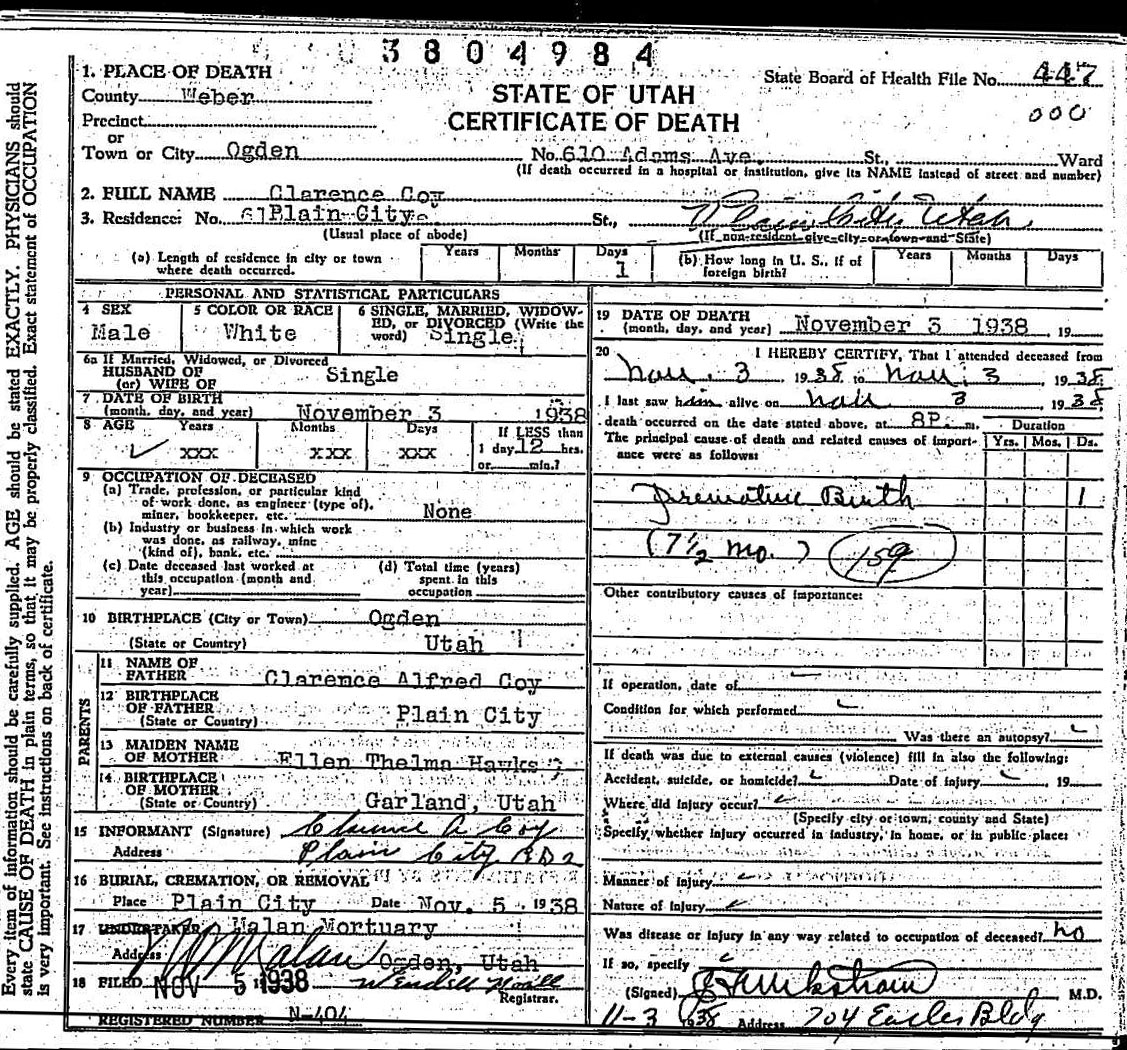 3804984
1. PLACE OF DEATH
State Board of Health File No. 447
County Weber
STATE OF UTAH
000
Precinct
CERTIFICATE OF DEATH
or
Town or City Ogden No. 610 Adams Ave. St., Ward
(If death occurred in a hospital or institution, give its NAME instead of street and number)
2. FULL NAME Clarence Coy
3. Residence: No. 61 Plain City St., Plain City Utah
(Usual place of abode) (If non-resident give city or town and State)
(a) Length of residence in city or town where death occurred. Years Months Days 1
(b) How long in U. S., if of foreign birth? Years Months Days
PERSONAL AND STATISTICAL PARTICULARS
4 SEX Male
5 COLOR OR RACE White
6 SINGLE, MARRIED, WIDOWED, or DIVORCED (Write the word) Single
6a If Married, Widowed, or Divorced
HUSBAND OF
(or) WIFE OF Single
7 DATE OF BIRTH
(month, day, and year) November 3 1938
8 AGE Years Months Days If LESS than
xxx xxx xxx 1 day 12 hrs.
or min.?
9 OCCUPATION OF DECEASED
(a) Trade, profession, or particular kind
of work done, as engineer (type of),
miner, bookkeeper, etc. None
(b) Industry or business in which work
was done, as railway, mine
(kind of), bank, etc.
(c) Date deceased last worked at
this occupation (month and
year)
(d) Total time (years)
spent in this
occupation
10 BIRTHPLACE (City or Town) Ogden
(State or Country) Utah
PARENTS
11 NAME OF
FATHER Clarence Alfred Coy
12 BIRTHPLACE
OF FATHER
(State or Country) Plain City
13 MAIDEN NAME
OF MOTHER Ellen Thelma Hawks
14 BIRTHPLACE
OF MOTHER
(State or Country) Garland, Utah
15 INFORMANT (Signature) Clarence A Coy
Address Plain City RD2
16 BURIAL, CREMATION, OR REMOVAL
Place Plain City Date Nov. 5 1938
17 UNDERTAKER Malan Mortuary
Address Ogden, Utah
18 FILED NOV 5 1938
Registrar.
REGISTERED NUMBER N-404
19 DATE OF DEATH
(month, day, and year) November 3 1938, 19
20 I HEREBY CERTIFY, That I attended deceased from
Nov. 3 1938 to Nov. 3 1938
I last saw him alive on Nov 3 1938
death occurred on the date stated above, at 8P. m.
Duration
The principal cause of death and related causes of importance were as follows: Yrs. Mos. Ds.
Premature Birth 1
(7 1/2 mo.) 159
Other contributory causes of importance:
If operation, date of
Condition for which performed
Was there an autopsy?
If death was due to external causes (violence) fill in also the following:
Accident, suicide, or homicide? Date of injury 19
Where did injury occur?
(Specify city or town, county and State)
Specify whether injury occurred in industry, in home, or in public place:
Manner of injury
Nature of injury
Was disease or injury in any way related to occupation of deceased? no
If so, specify
(Signed) M.D.
11-3 1938 Address 704 Eccles Bldg
Every item of information should be carefully supplied. AGE should be stated EXACTLY. PHYSICIANS should
state CAUSE OF DEATH in plain terms, so that it may be properly classified. Exact statement of OCCUPATION
is very important. See instructions on back of certificate.